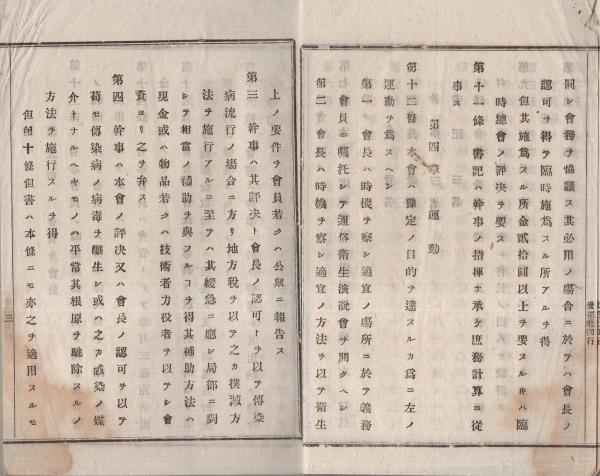 同シ會務ヲ協議ス其必用ノ塲合ニ於テハ會長ノ
認可ヲ得テ臨時施爲スル所アルヲ得
但其施爲スル所金貳拾圓以上ヲ要スルキハ臨
時總會ノ評決ヲ要ス
第十一條書記ハ幹事ノ指揮ヲ承ケ庶務計算ニ從
事ス
第四章 運動
第十二條本會ハ豫定ノ目的ヲ達スルカ爲ニ左ノ
運動ヲ爲スヘシ
第一 會長ハ時機ヲ察シ適宜ノ塲所ニ於テ義務
會員ニ囑托シテ通俗衛生演說會ヲ開クヘシ
第二 會長ハ時機ヲ察シ適宜ノ方法ヲ以テ衛生
上ノ要件ヲ會員若クハ公衆ニ報告ス
第三 幹事ハ其評決ト會長ノ認可トヲ以テ傳染
病流行ノ塲合ニ方リ地方稅ヲ以テ之カ撲滅方
法ヲ施行アルニ至テハ其緩急ニ應シ局部ニ對
シテ相當ノ補助ヲ與フルコヲ得其補助方法ハ
現金或ハ物品若クハ技術者力役者ヲ以テシ會
資ヨリ之ヲ弁ス
第四 幹事ハ本會ノ評決又ハ會長ノ認可ヲ以テ
苟モ傳染病ノ病毒ヲ釀生シ或ハ之カ感染ノ媒
介トナルヘキモノハ平常其根原ヲ駆除スルノ
方法ヲ施行スルヲ得
但第十條但書ハ本條ニモ亦之ヲ適用スルモ
三